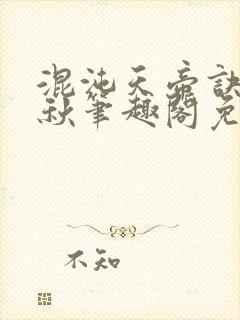 混沌天帝诀
秋笔趣阁免
不知